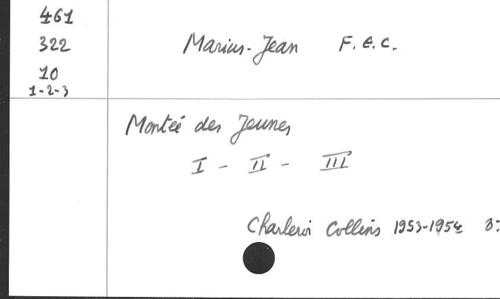 461
322
10
1-2-3
Marius-Jean F.E.C.
Montée des Jeunes
I - II - III
Charleroi Collins 1953-1954 3: